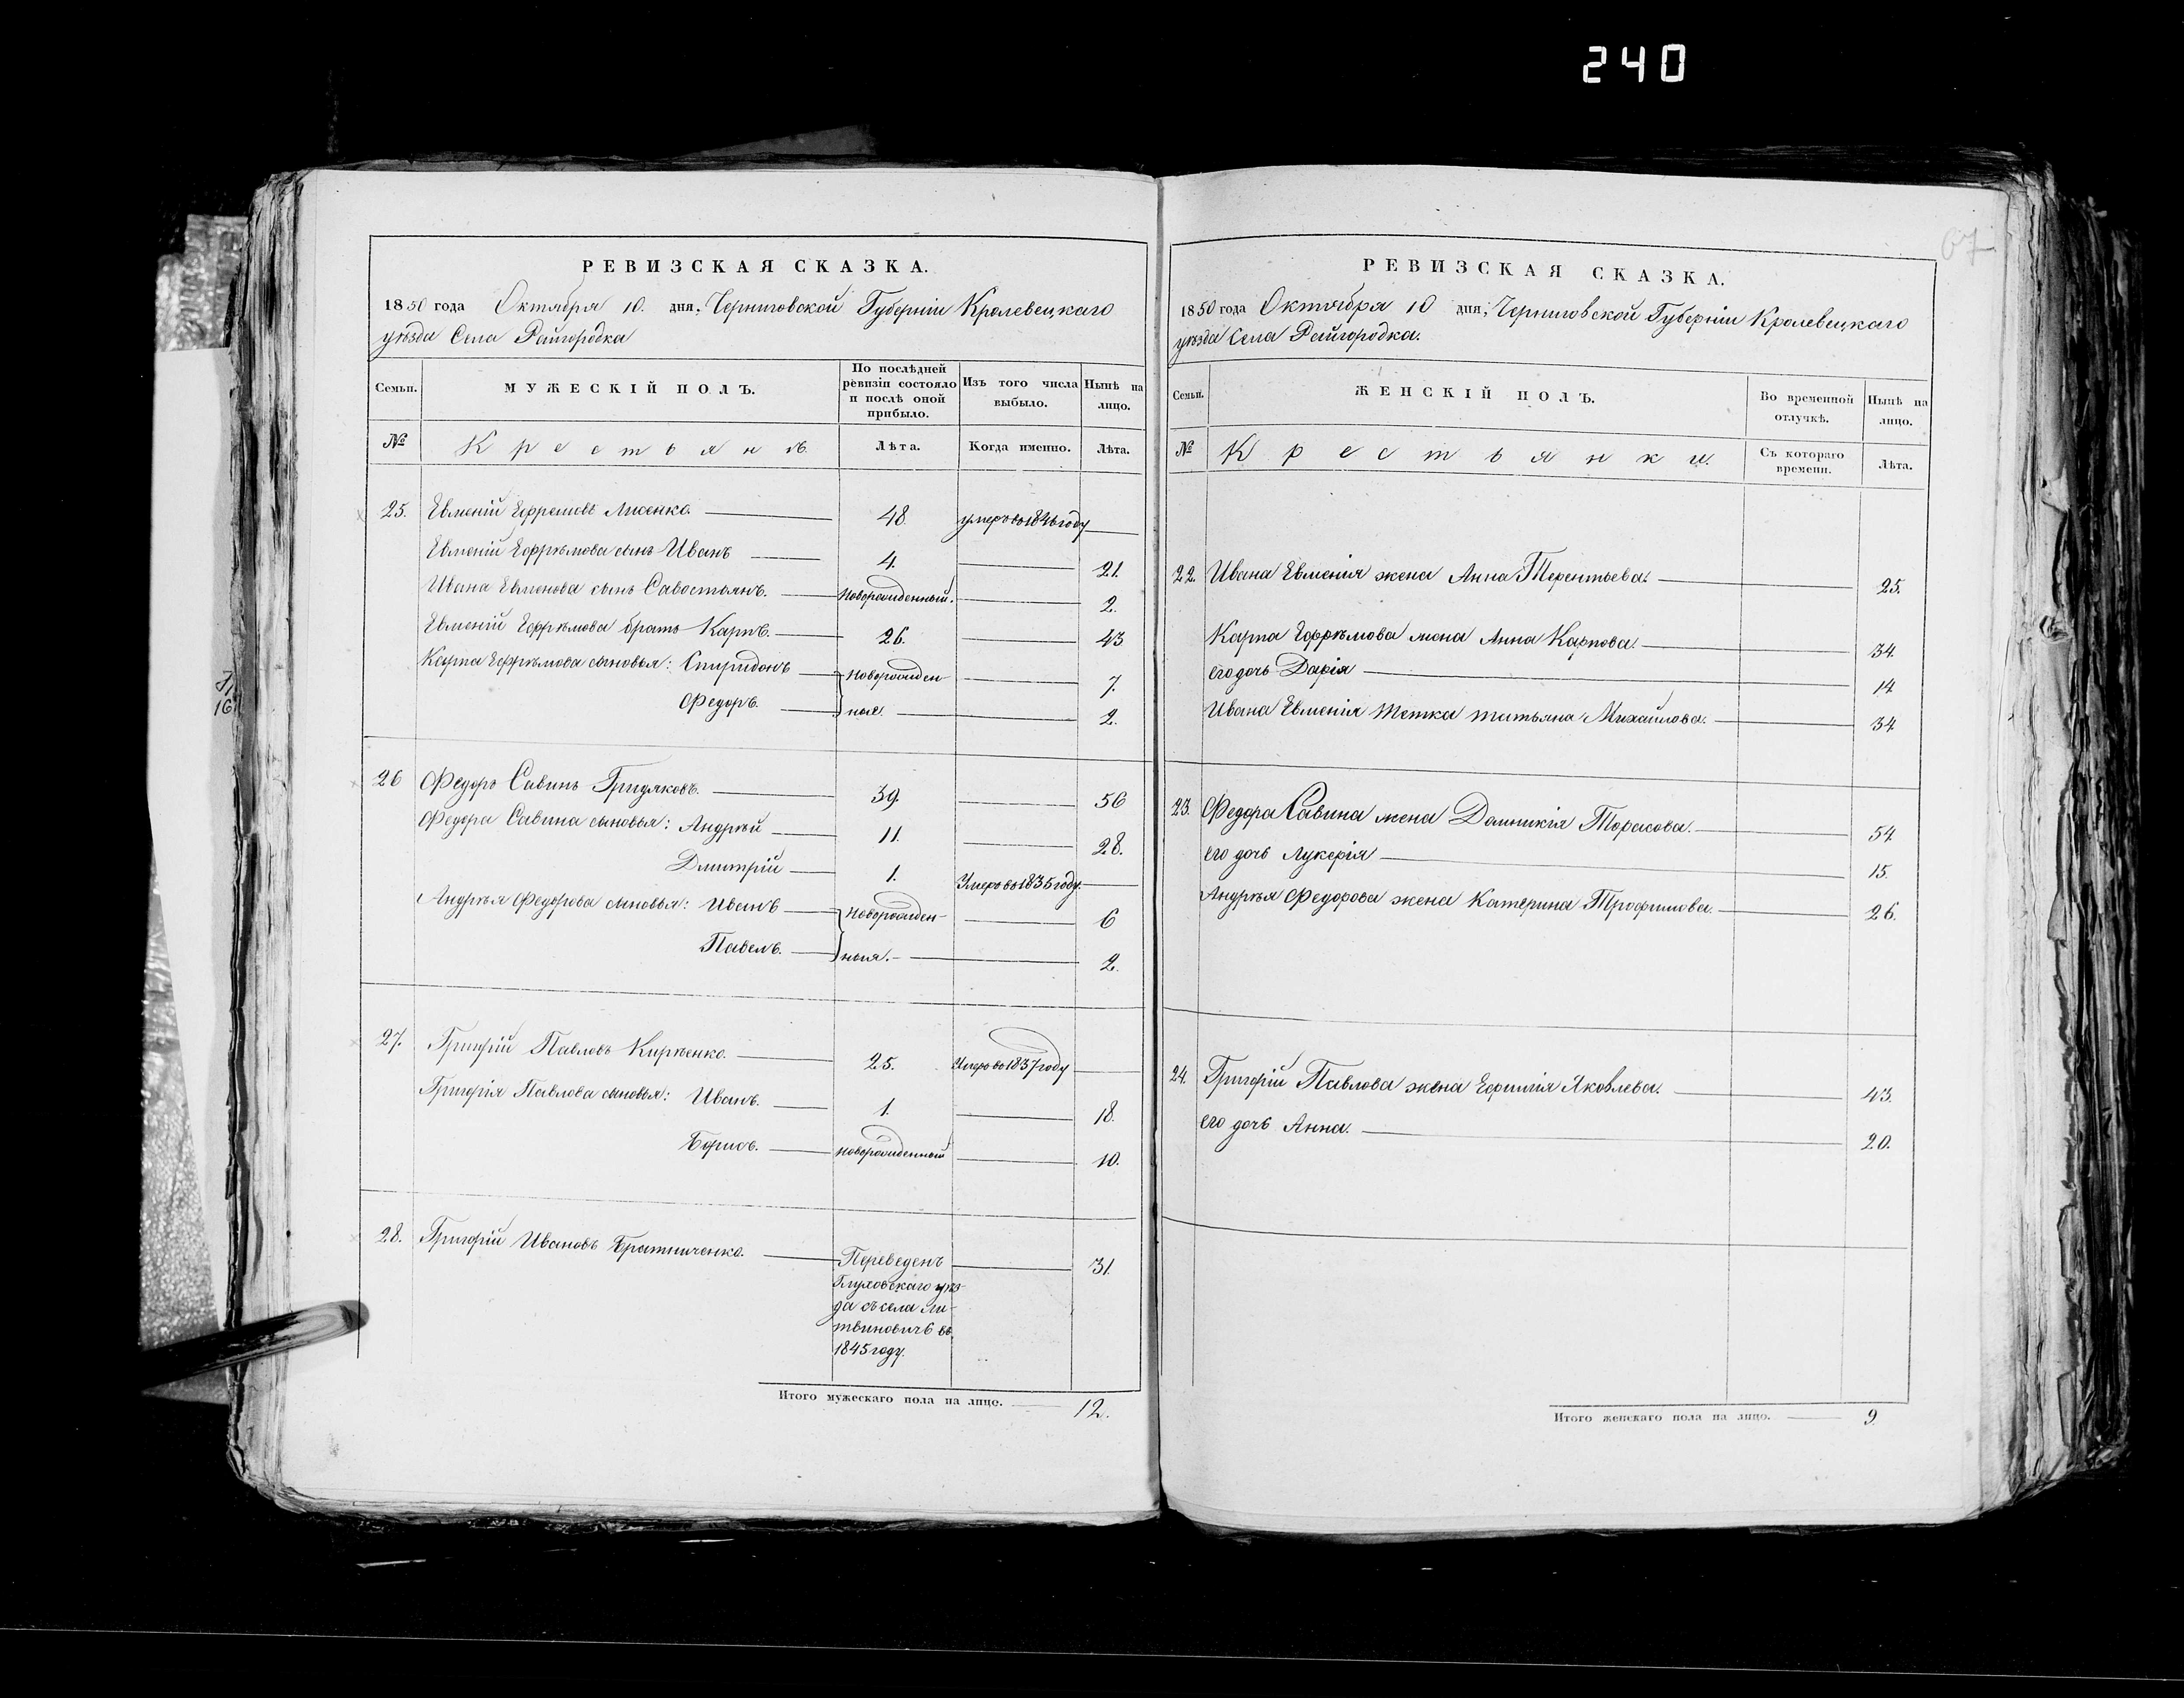 240
67
РЕВИЗСКАЯ СКАЗКА.
1850 года Октября 10. дня, Черниговской Губерніи Кролевецкаго
уѣзда Села Райгородка
Семьи. МУЖЕСКІЙ ПОЛЪ. По послѣдней ревизіи состояло и послѣ оной прибыло. Изъ того числа выбыло. Нынѣ на лицо.
№ Крестьянъ. Лѣта. Когда именно. Лѣта.
25. Евменій Ефремовъ Лисенко. 48. умеръ во 1846 году
Евменій Ефрѣмова сынъ Иванъ 4. 21.
Ивана Евменова сынъ Савостьянъ. Новорожденный. 2.
Евменій Ефрѣмова братъ Карпъ. 26. 43
Карпа Ефрѣмова сыновья: Спиридонъ Новорожден- 7.
Федоръ. ные. 2.
26 Федоръ Савинъ Гридяковъ. 39. 56
Федора Савина сыновья: Андрѣй 11. 28.
Дмитрій 1. Умеръ во 1835 году.
Андрѣя Федорова сыновья: Иванъ Новорожден- 6
Павелъ. ныя. 2.
27. Григорій Павловъ Кирѣенко. 25. Умеръ во 1837 году
Григорія Павлова сыновья: Иванъ. 1. 18.
Борисъ. новорожденный 10.
28. Григорій Ивановъ Братниченко. Переведенъ 31.
Глуховскаго уѣз-
да съ села Ли-
твиновичъ въ
1845 году.
Итого мужескаго пола на лицо. 12.
РЕВИЗСКАЯ СКАЗКА.
1850 года Октября 10 дня, Черниговской Губерніи Кролевецкаго
уѣзда Села Райгородка.
Семьи. ЖЕНСКІЙ ПОЛЪ. Во временной отлучкѣ. Нынѣ на лицо.
№ Крестьянки. Съ котораго времени. Лѣта.
22. Ивана Евменія жена Анна Терентьева. 25.
Карпа Ефрѣмова жена Анна Карпова. 34.
его дочь Дарія 14
Ивана Евменія тетка татьяна Михайлова. 34
23. Федора Савина жена Домникія Торасова. 54.
его дочь Лукерія 15.
Андрѣя Федорова жена Катерина Трофимова. 26.
24. Григорій Павлова жена Ефимія Яковлева. 43.
его дочь Анна. 20.
Итого женскаго пола на лицо. 9